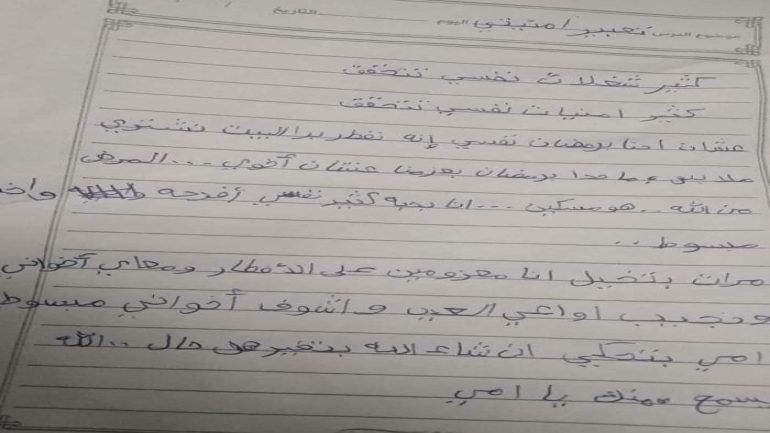 موضوع الدرس تعبير / امنيتي اليوم التاريخ
كثير شغلات نفسي تتحقق
كثير امنيات نفسي تتحقق
عشان احنا برمضان نفسي إنه نفطر برا البيت نشتري
ملابس وما حدا برمضان بعزمنا عشان أخوي ... المرض
من الله .. هو مسكين ... انا بحبه كثير نفسي أفرحه
مبسوط ..
مرات بتخيل انا معزومين على الافطار ومعاي أخواني
ونجيب اواعي العيد واشوف أخواني مبسوط
امي بتحكي ان شاء الله بتغير هل حال .. الله
يسمع منك يا امي